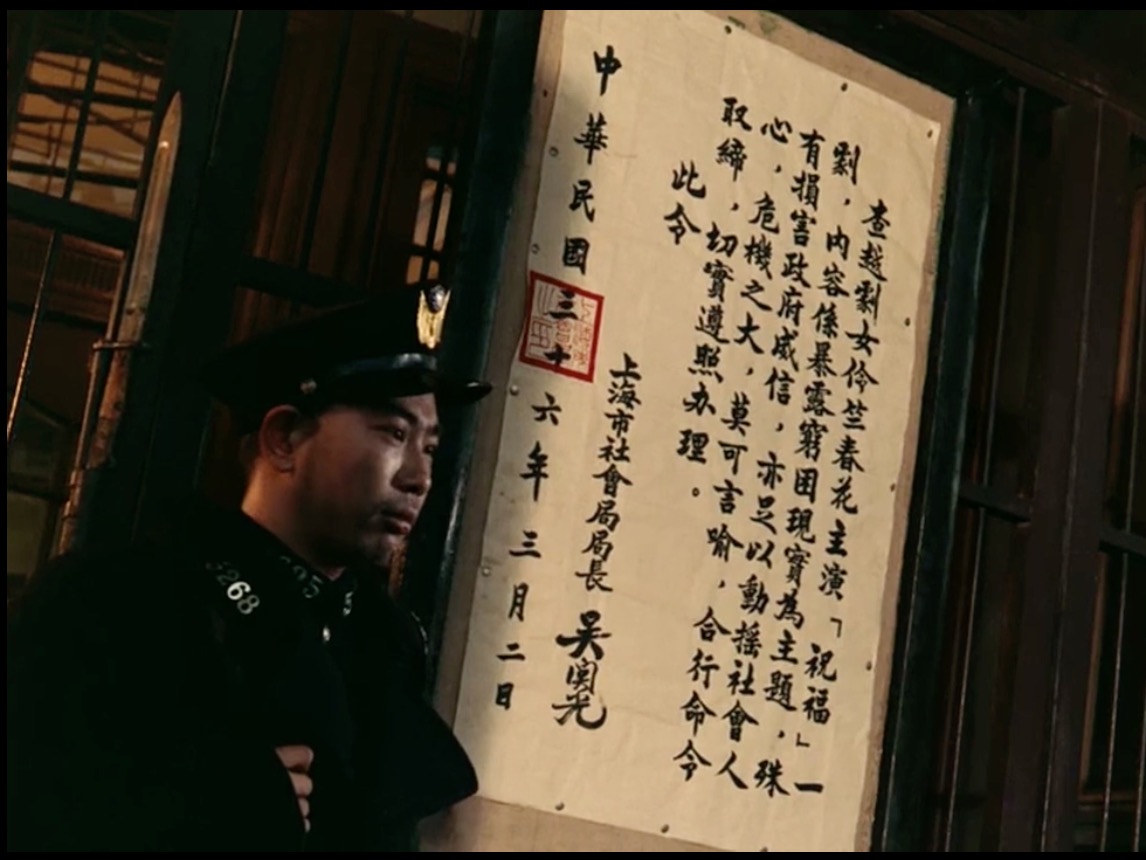 查越劇女伶竺春花主演「祝福」一
劇，內容係暴露窮困現實為主題，殊
有損害政府威信，亦足以動搖社會人
心，危機之大，莫可言喻，合行命令
取締，切實遵照办理。
此令
上海市社會局局長 吳
中華民國三十六年三月二日
3268